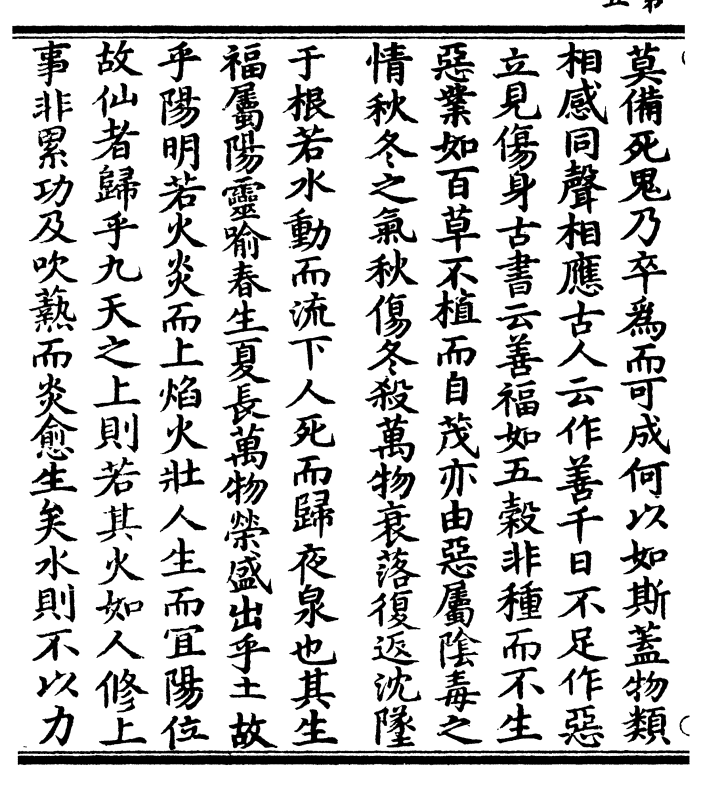 莫備死鬼乃卒爲而可成何以如斯蓋物類
相感同聲相應古人云作善千日不足作惡
立見傷身古書云善福如五穀非種而不生
惡業如百草不植而自茂亦由惡屬陰毒之
情秋冬之氣秋傷冬殺萬物衰落復返沈墜
于根若水動而流下人死而歸夜泉也其生
福屬陽靈喻春生夏長萬物榮盛出乎土故
乎陽明若火炎而上焰火壯人生而冝陽位
故仙者歸乎九天之上則若其火如人修上
事非累功及吹爇而炎愈生矣水則不以力